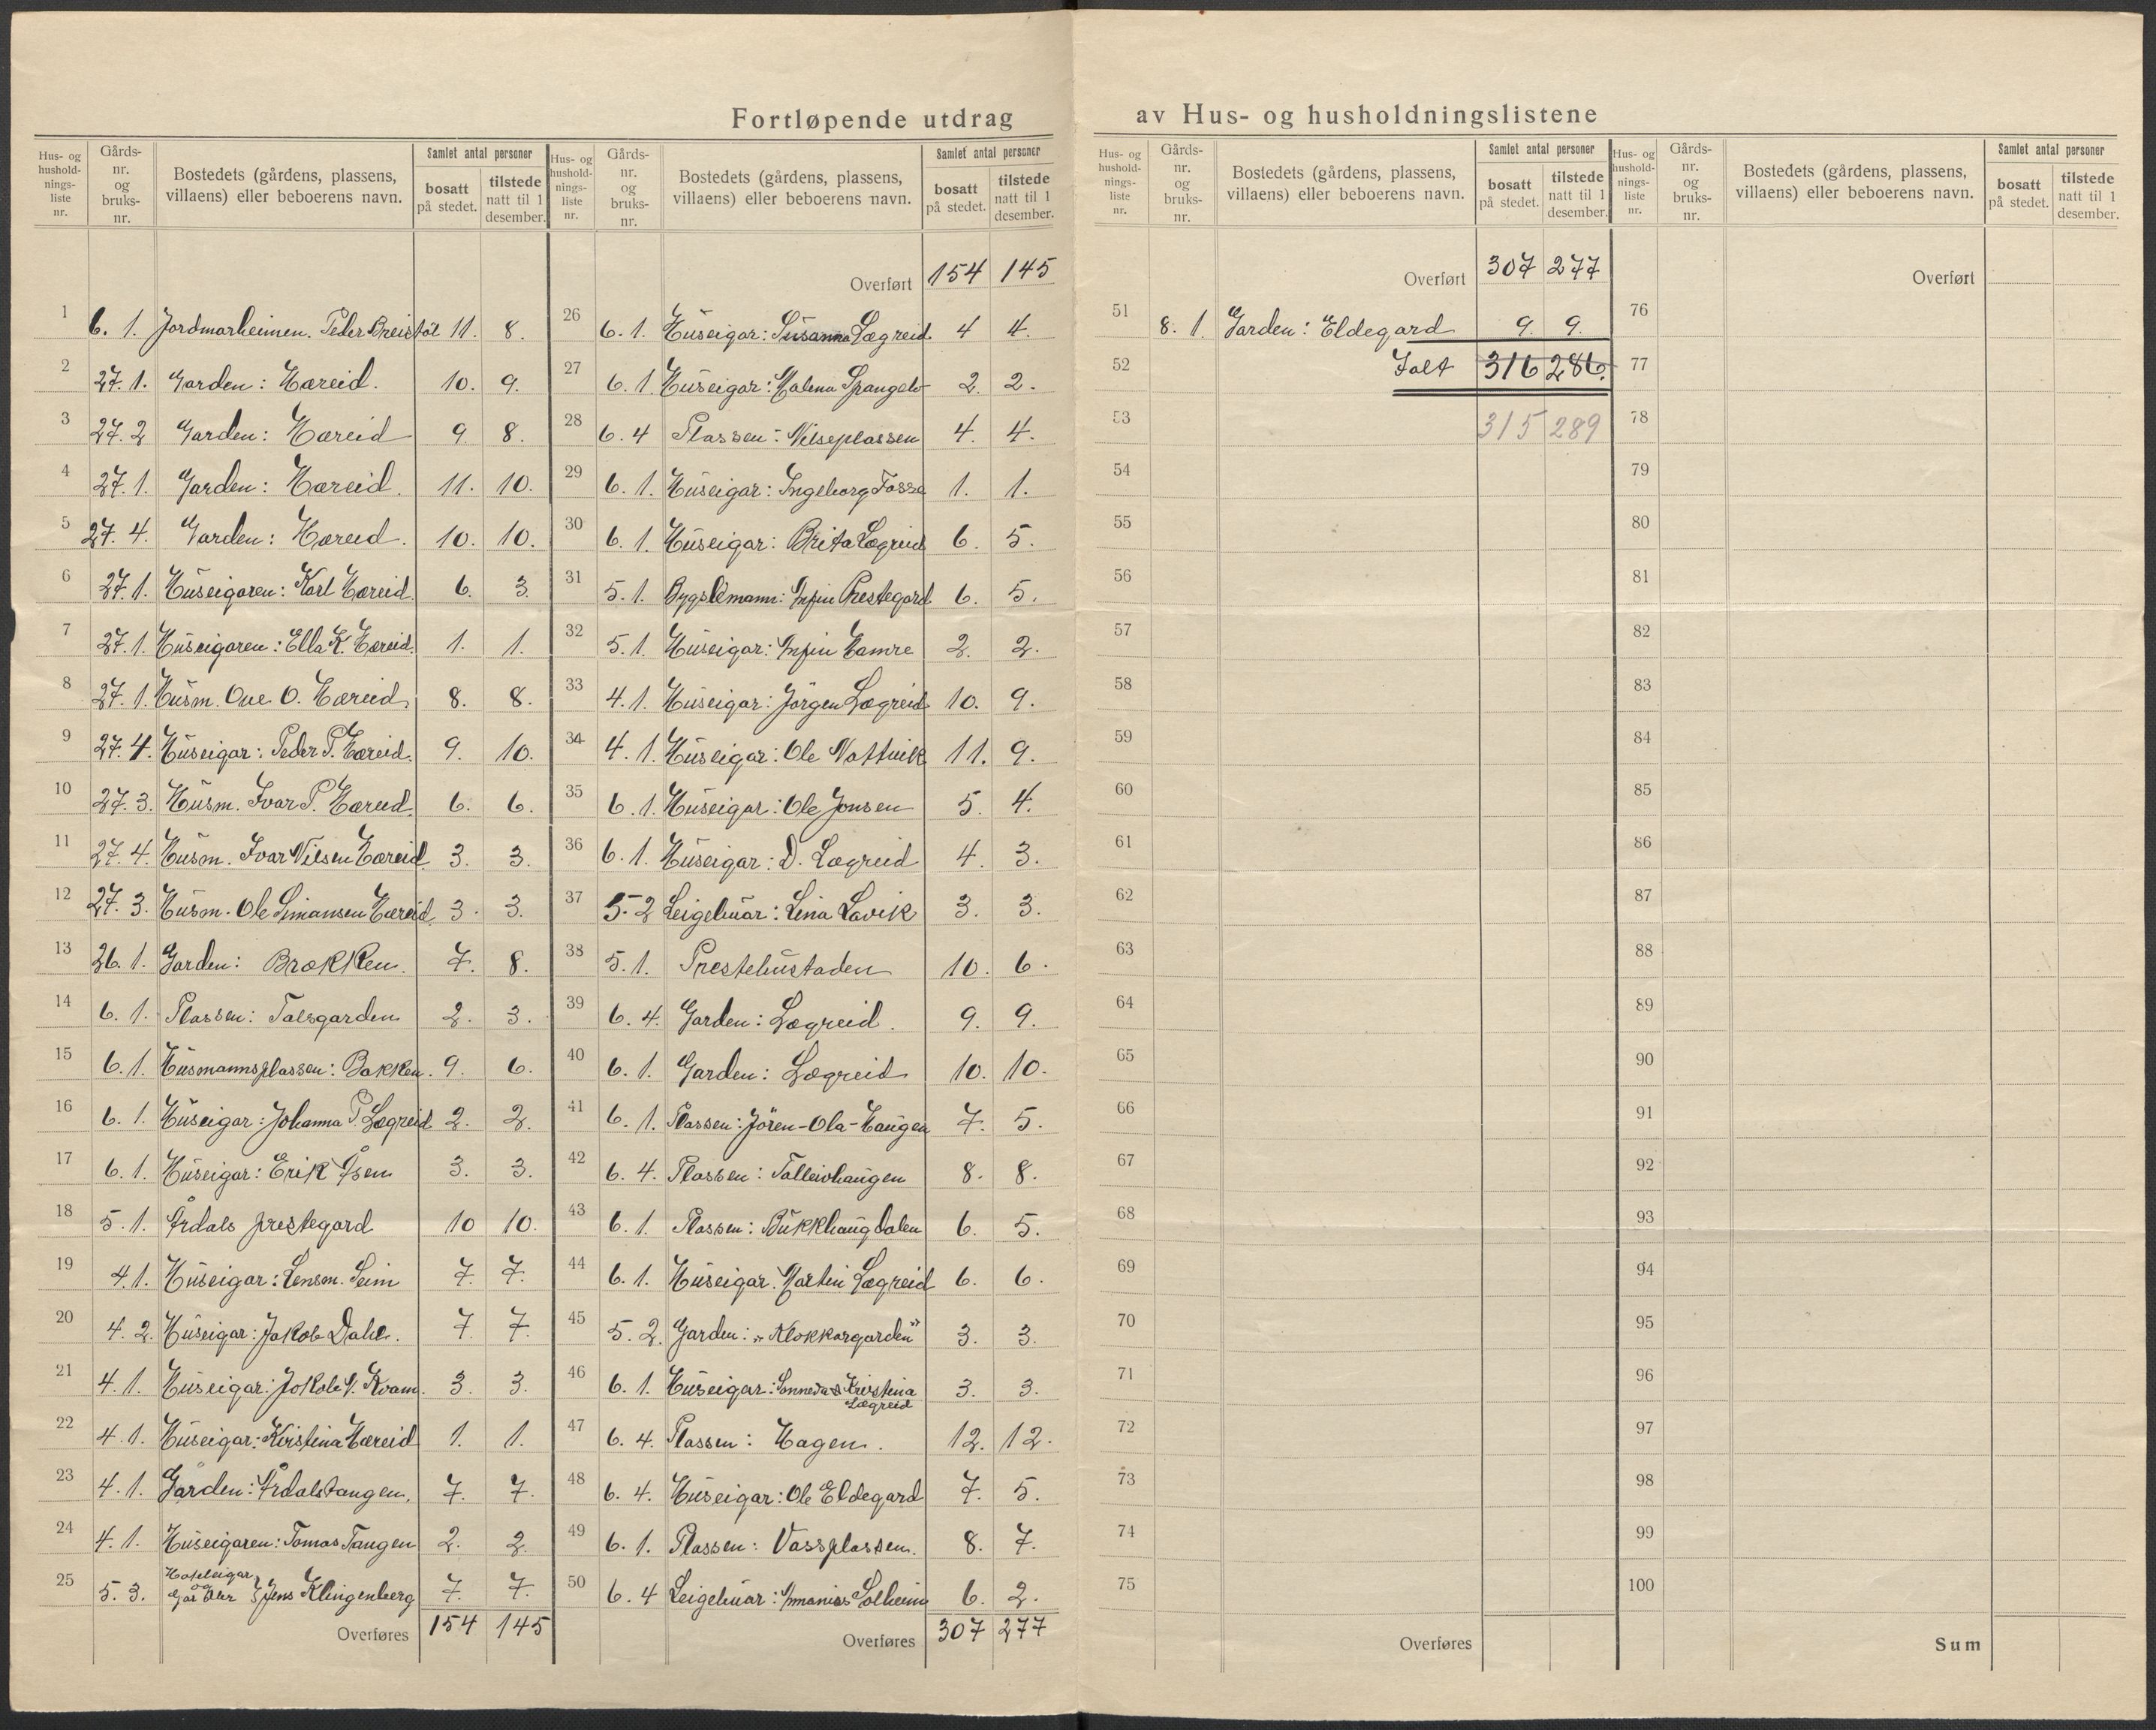 Fortløpende utdrag av Hus- og husholdningslistene
Hus- og hushold-nings-liste nr. Gårds-nr. og bruks-nr. Bostedets (gårdens, plassens, villaens) eller beboerens navn. Samlet antal personer bosatt på stedet. tilstede natt til 1 desember.
1 6. 1. Jordmorheimen. Peder Breistøl 11. 8.
2 27. 1. Garden: Hæreid. 10. 9.
3 27. 2 Garden: Hæreid 9 8.
4 27. 1. Garden: Hæreid. 11. 10.
5 27. 4. Garden: Hæreid. 10. 10.
6 27. 1. Huseigaren: Karl Hæreid. 6. 3.
7 27. 1. Huseigaren: Ella K. Hæreid. 1. 1.
8 27. 1. Husm. Ove O. Hæreid. 8. 8.
9 27. 4. Huseigar: Peder P. Hæreid. 9. 10.
10 27. 3. Husm. Ivar P. Hæreid. 6. 6.
11 27. 4. Husm. Ivar Nilsen Hæreid. 3. 3.
12 27. 3. Husm. Ole Simansen Hæreid. 3. 3.
13 26. 1. Garden: Brækken. 7. 8.
14 6. 1. Plassen: Talsgarden 2. 3.
15 6. 1. Husmannsplassen: Bakken. 9. 6.
16 6. 1. Huseigar: Johanna P. Lægreid 2. 2.
17 6. 1. Huseigar: Erik Åsen 3. 3.
18 5. 1. Årdals prestegard 10 10.
19 4. 1. Huseigar: Lensm. Seim 7. 7.
20 4. 2. Huseigar: Jakob Dahl. 7. 7.
21 4. 1. Huseigar: Jakob Kvam. 3. 3.
22 4. 1. Huseigar: Kristina Hæreid 1. 1.
23 4. 1. Garden: Årdalstangen. 7. 7.
24 4. 1. Huseigaren: Tomas Tangen 2. 2.
25 5. 3. Hotelleigar og Jens Klingenberg 7. 7.
Overføres 154 145
Hus- og hushold-nings-liste nr. Gårds-nr. og bruks-nr. Bostedets (gårdens, plassens, villaens) eller beboerens navn. Samlet antal personer bosatt på stedet. tilstede natt til 1 desember.
Overført 154 145
26 6. 1. Huseigar: Susanna Lægreid 4 4.
27 6. 1. Huseigar: Malena Spangelo 2. 2.
28 6. 4 Plassen: Nilseplassen 4. 4.
29 6. 1. Huseigar: Ingeborg Fosse 1. 1.
30 6. 1. Huseigar: Brita Lægreid 6. 5.
31 5. 1. Bygslemann: Anfin Prestegard 6. 5.
32 5. 1. Huseigar: Anfin Hamre 2. 2.
33 4. 1. Huseigar: Jørgen Lægreid 10. 9.
34 4. 1. Huseigar: Ole Nattvik 11. 9.
35 6. 1. Huseigar: Ole Jonsen 5 4.
36 6. 1. Huseigar: D. Lægreid 4. 3.
37 5. 2 Leigebuar: Lina Lavik 3. 3.
38 5. 1. Prestebustaden 10. 6.
39 6. 4. Garden: Lægreid. 9. 9.
40 6. 1. Garden: Lægreid 10. 10.
41 6. 1. Plassen: Jören-Ola-Haugen 7. 5.
42 6. 4. Plassen: Talleivhaugen 8. 8.
43 6. 1. Plassen: Bukkhaugdalen 6. 5.
44 6. 1. Huseigar. Martin Lægreid 6. 6.
45 5. 2. Garden: „Klokkargarden" 3. 3.
46 6. 1. Huseigar: Kristina Lægreid 3. 3.
47 6. 4. Plassen: Hagen. 12. 12.
48 6. 4. Huseigar: Ole Eldegard 7. 5.
49 6. 1. Plassen: Vassplassen. 8. 7.
50 6. 4 Leigebuar: Solheim 6. 2.
Overføres 307 277
Hus- og hushold-nings-liste nr. Gårds-nr. og bruks-nr. Bostedets (gårdens, plassens, villaens) eller beboerens navn. Samlet antal personer bosatt på stedet. tilstede natt til 1 desember.
Overført 307 277
51 8. 1 Garden: Eldegard 9. 9.
52 Ialt 316 286.
53 315 289
54
55
56
57
58
59
60
61
62
63
64
65
66
67
68
69
70
71
72
73
74
75
Overføres
Hus- og hushold-nings-liste nr. Gårds-nr. og bruks-nr. Bostedets (gårdens, plassens, villaens) eller beboerens navn. Samlet antal personer bosatt på stedet. tilstede natt til 1 desember.
Overført
76
77
78
79
80
81
82
83
84
85
86
87
88
89
90
91
92
93
94
95
96
97
98
99
100
Sum